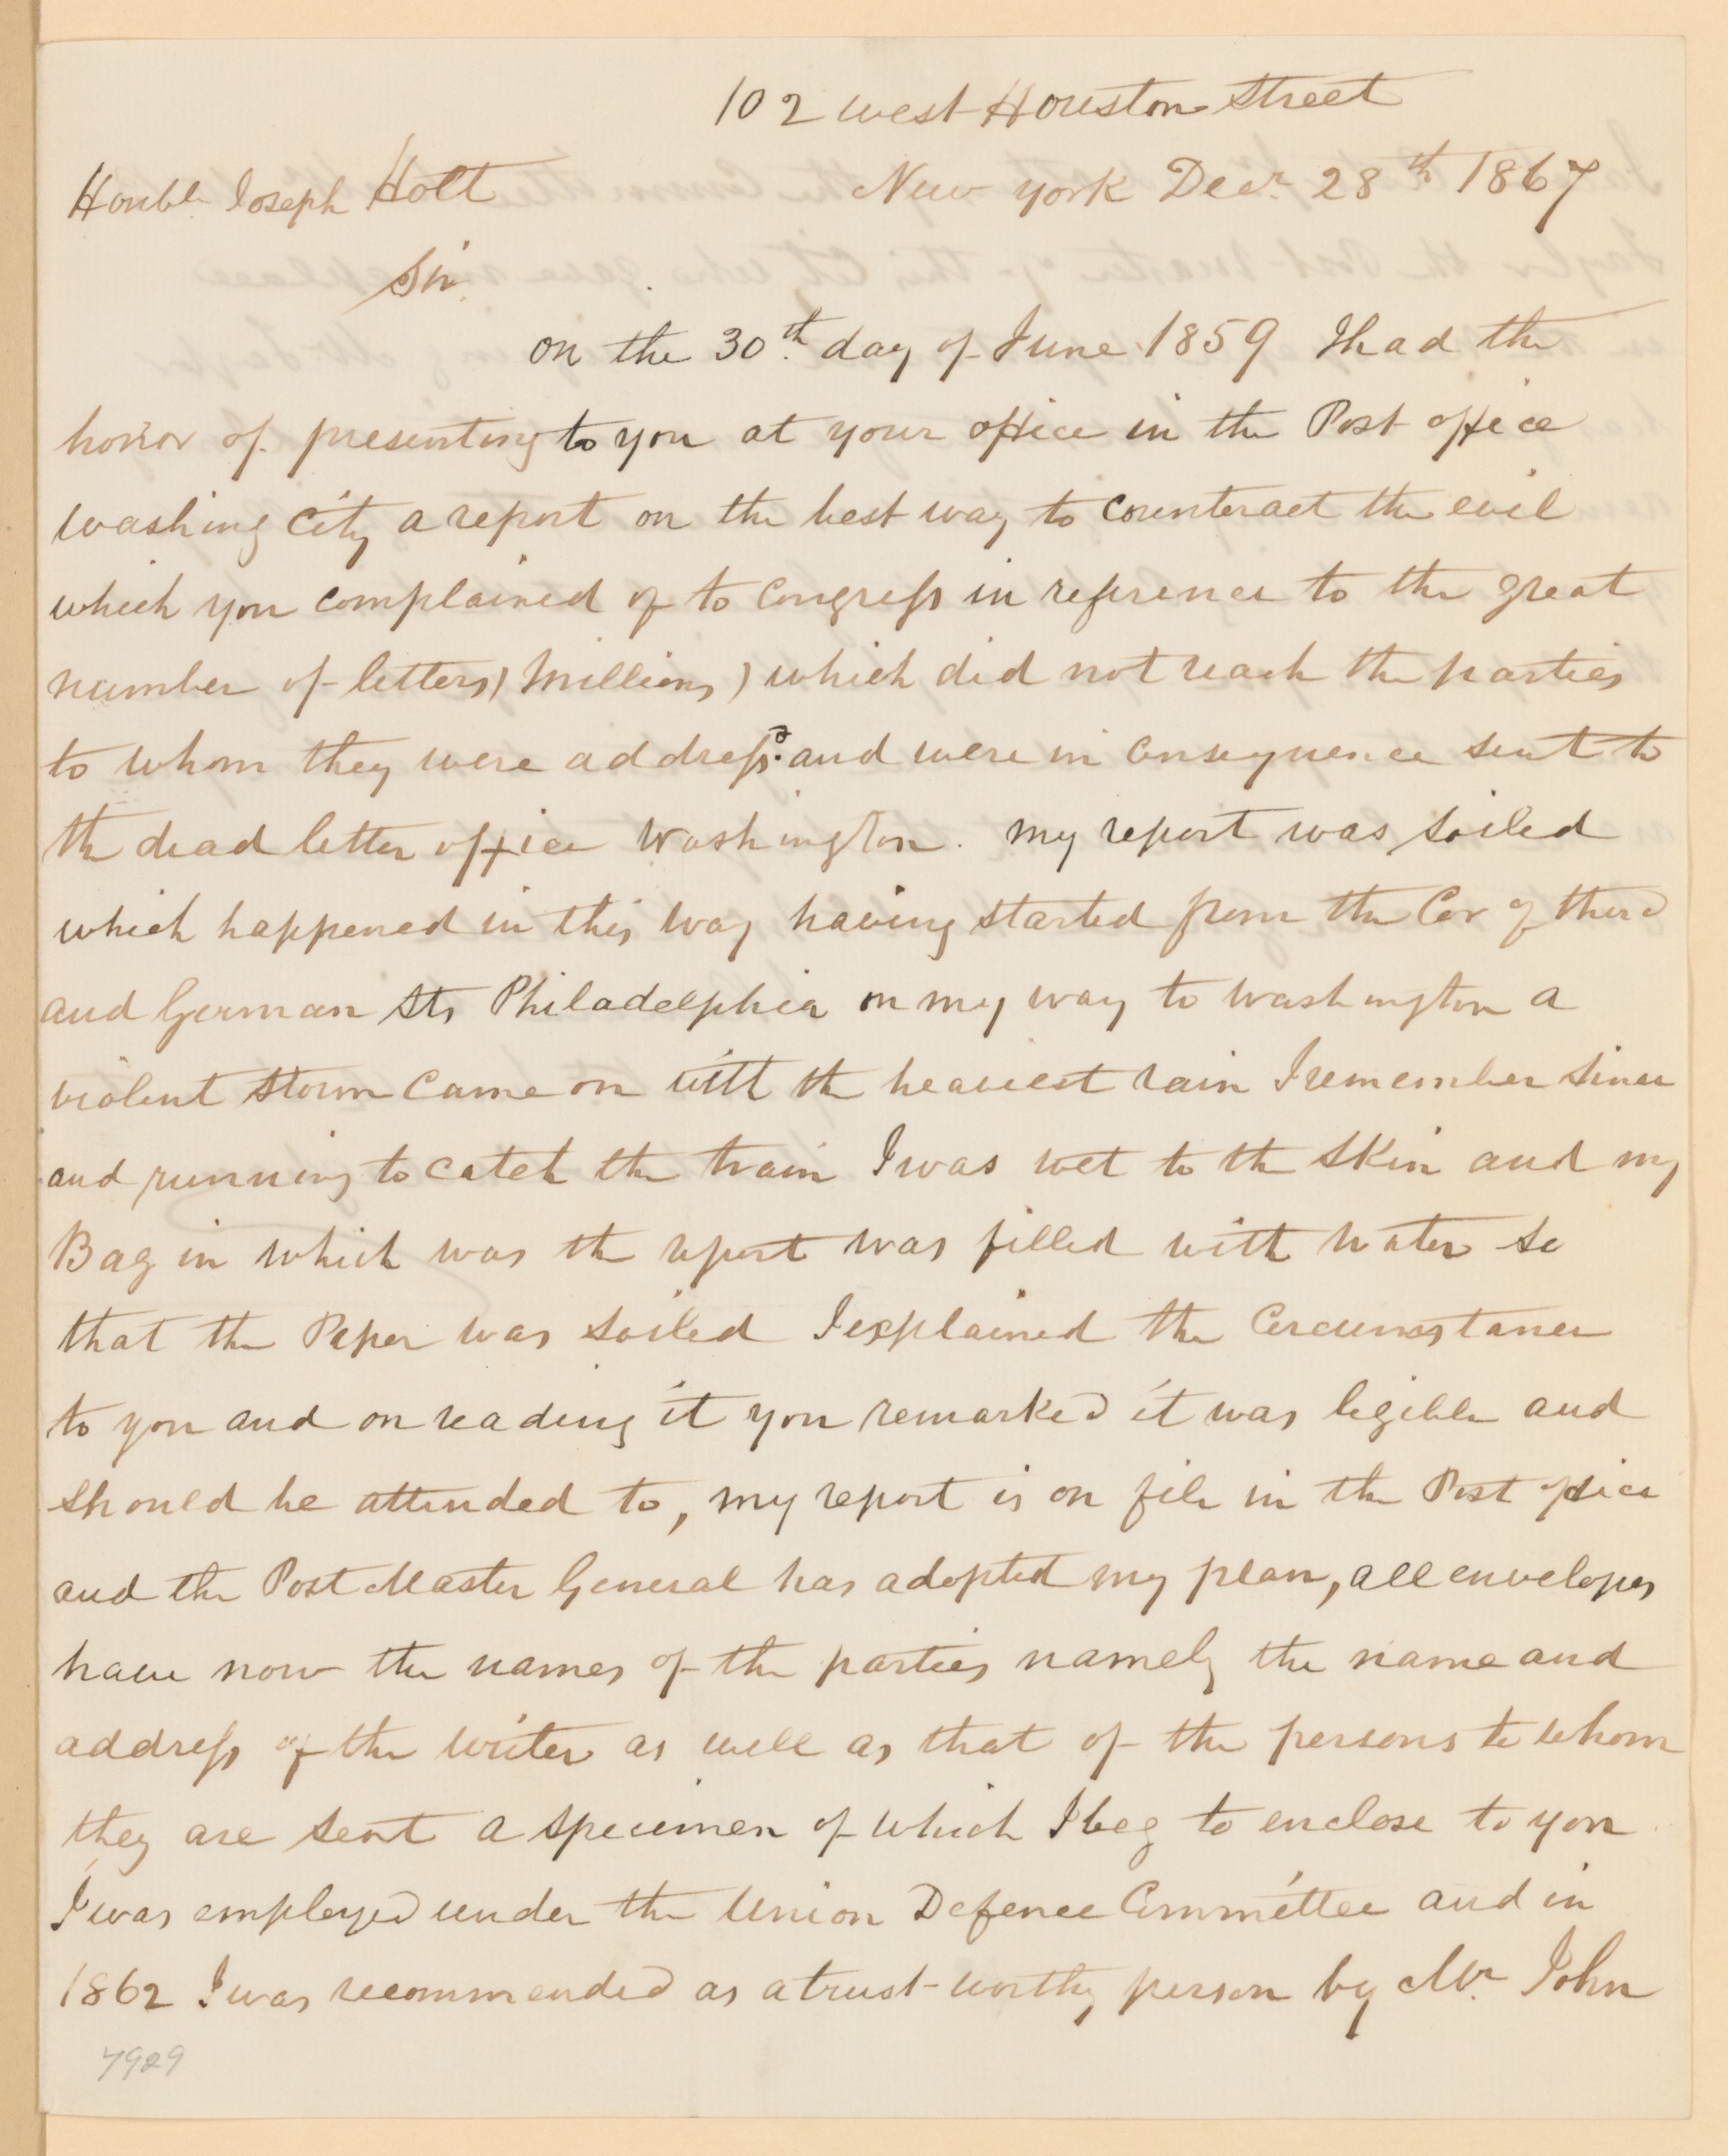 102 west Houston Street
New york Decr. 28th 1867
Honble Joseph Holt
Sir
on the 30th. day of June 1859 I had the
honor of presenting to you at your office in the Post office
washing City a report on the best way to counteract the evil
which you complained of to Congress in reference to the great
number of letters) Millions) which did not reach the parties
to whom they were address.d and were in consequence sent to
the dead letter office Washington. my report was soiled
which happened in this way having started from the Cor of third
and German Sts Philadelphia on my way to Washington a
violent storm came on with the heaviest rain I remember since
and running to catch the train I was wet to the skin and my
Bag in which was the report was filled with water so
that the Paper was soiled I explained the Circumstance
to you and on reading it you remarked it was legible and
should be attended to, my report is on file in the Post office
and the Post Master General has adopted my plan, all envelopes
have now the names of the parties namely the name and
address of the writer as well as that of the persons to whom
they are sent a specimen of which I beg to enclose to you
I was employed under the Union Defence Committee and in
1862 I was recommended as a trust-worthy person by Mr. John
7929